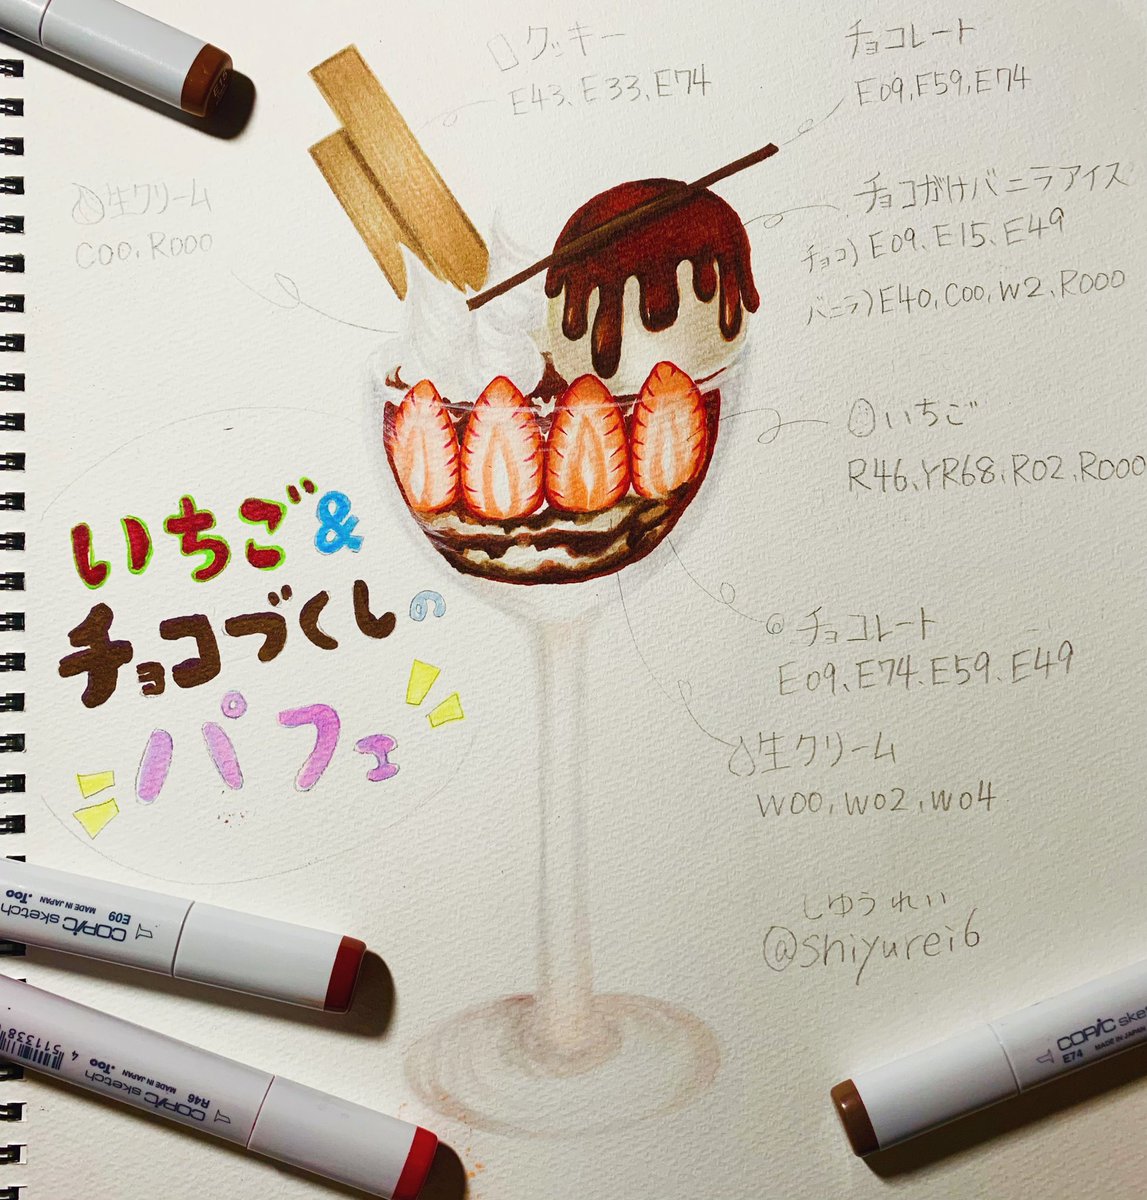 クッキー
E43、E33、E74
チョコレート
E09,E59,E74
生クリーム
C00,R000
チョコがけバニラアイス
チョコ)E09、E15、E49
バニラ)E40,C00,W2,R000
いちご
R46、YR68,R02,R000
いちご&
チョコづくしの
パフェ
チョコレート
E09、E74.E59、E49
生クリーム
W00,W02,W04
しゆうれい
@shiyurei6
COPIC sketch
E09
MADE IN JAPAN .Too
COPIC sketch
R46
MADE IN JAPAN .Too
4 511338
COPIC sketc
E74
MADE IN JAPA
E15